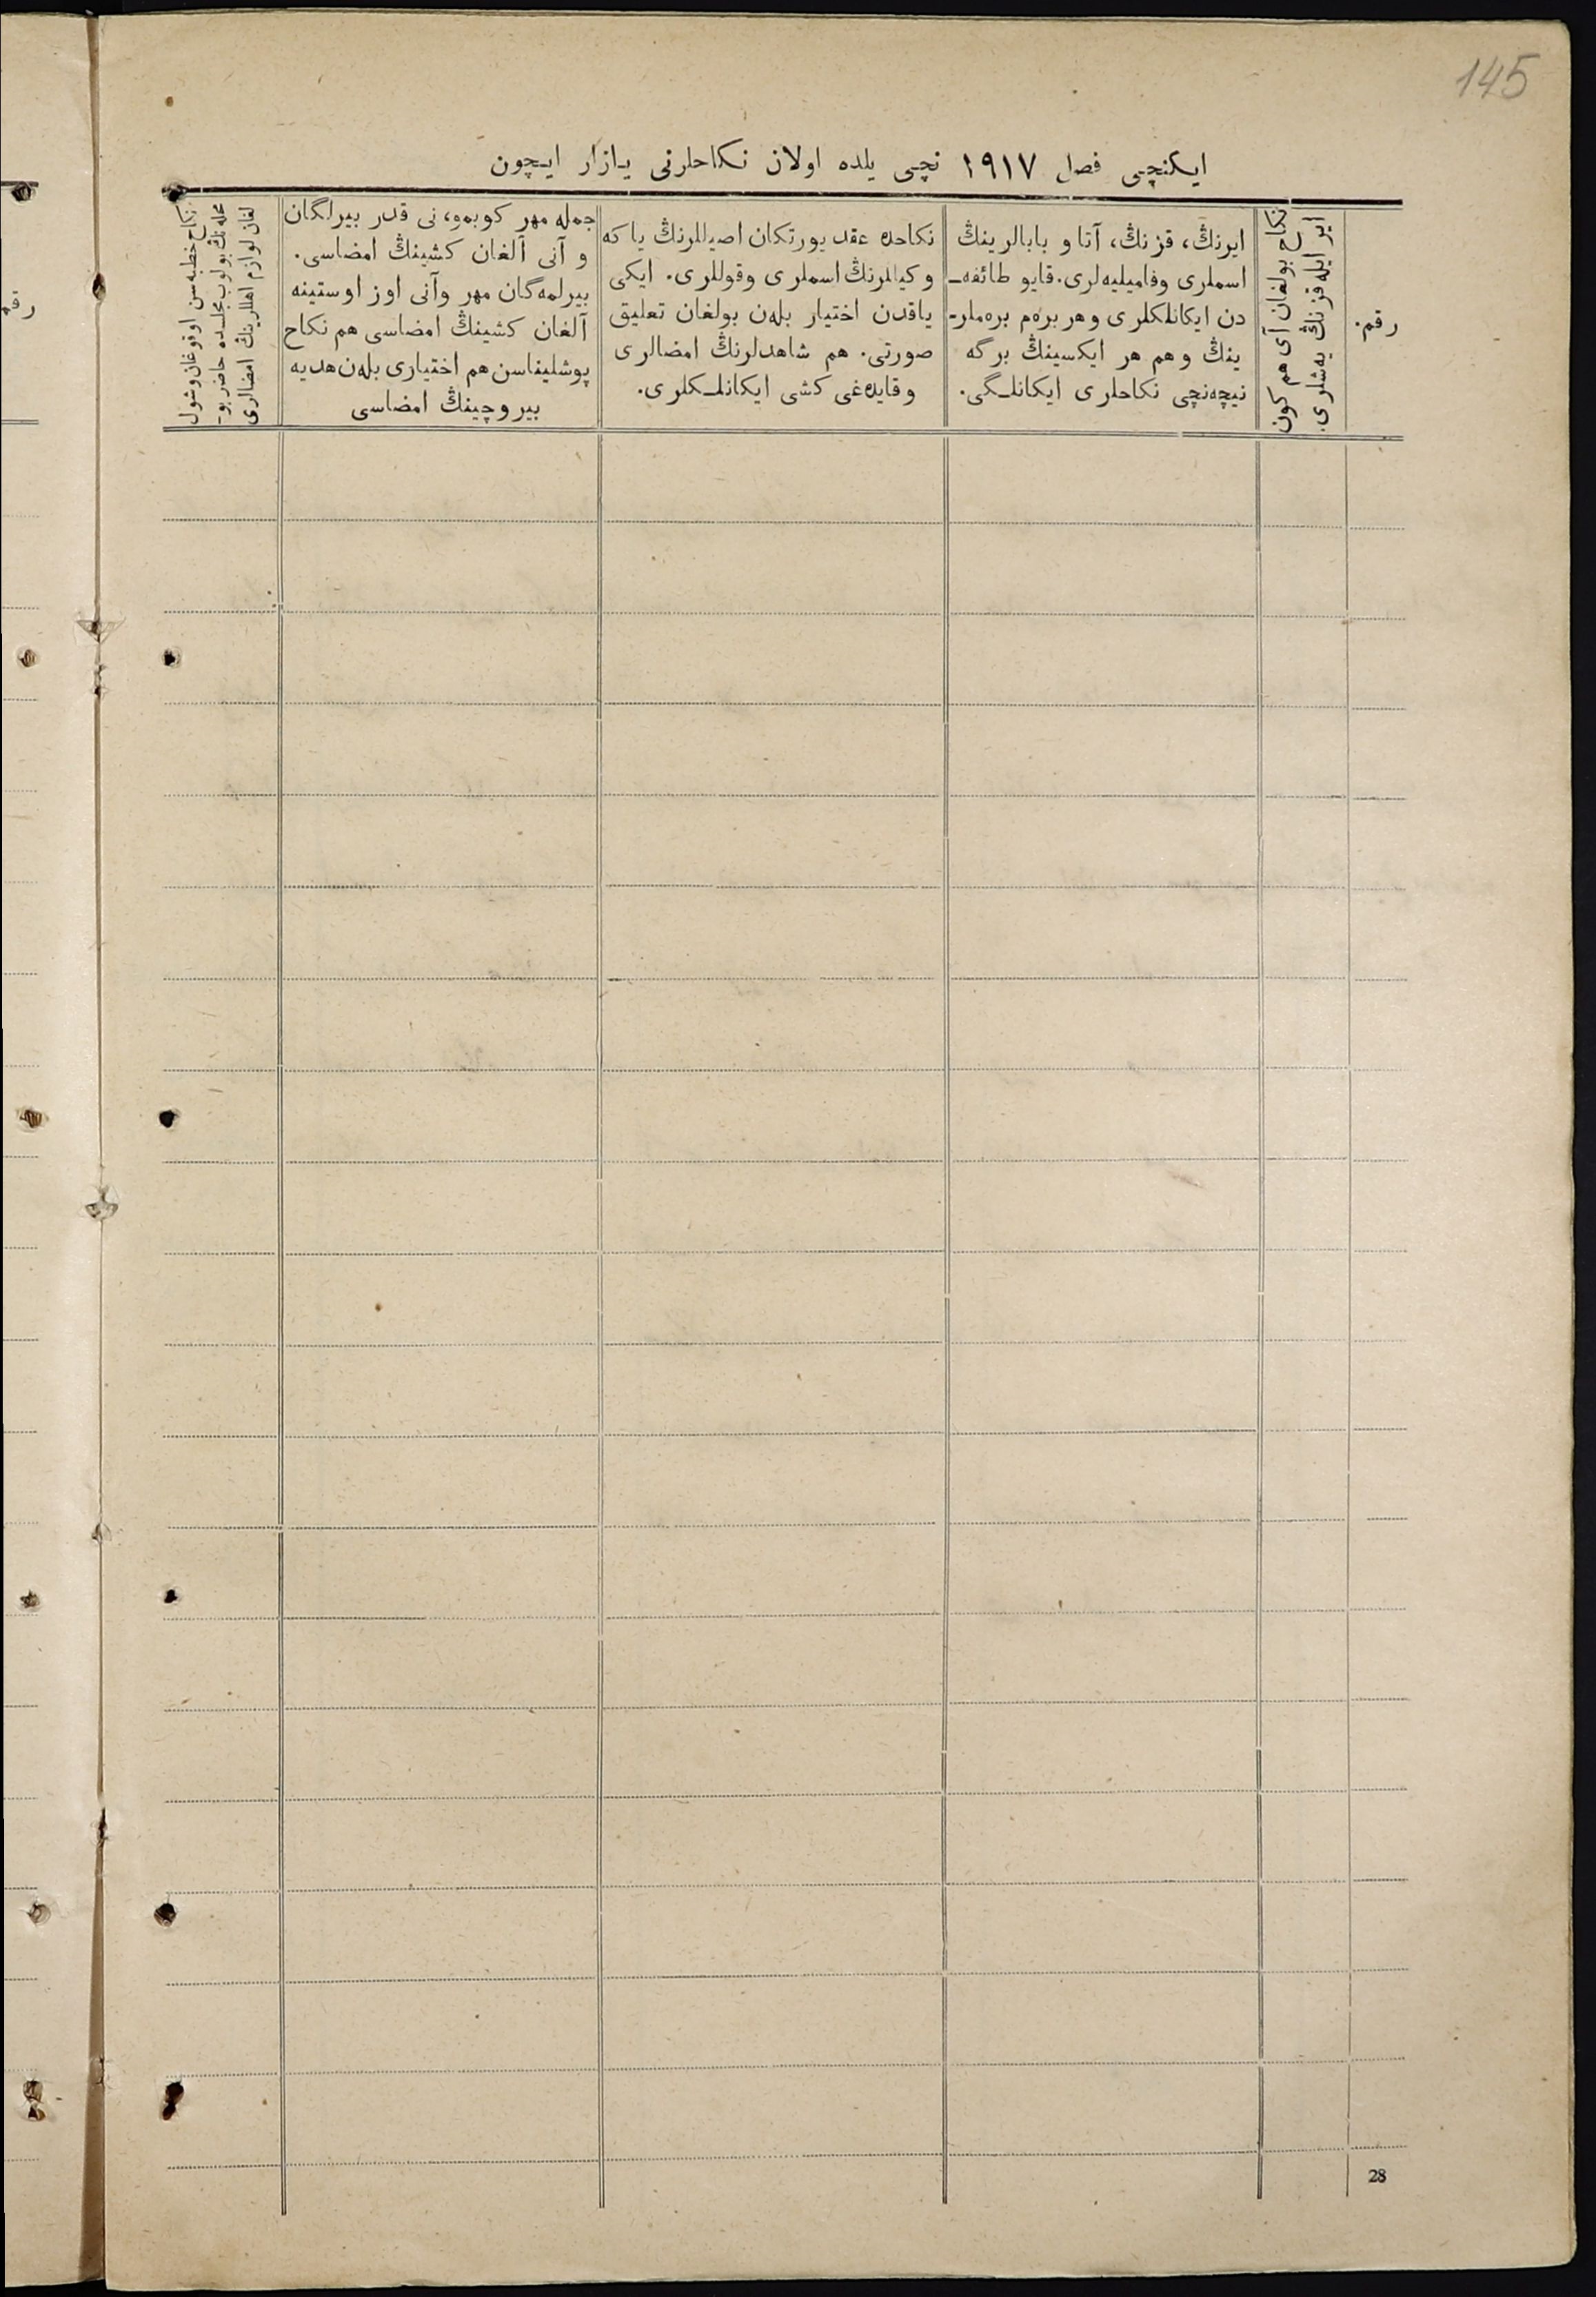 145
ایکنچی فصل ۱۹۱۷ نچی یلده اولان نکاحلرنی یازار ایچون
رقم.
نکاح بولغان آی هم کون
ایر ایله قزنڭ یه‌شلری.
ایرنڭ، قزنڭ، آتا و بابالرینڭ
اسملری وفامیلیه‌لری. قایو طائفه‌ـ
دن ایکانلکلری و هر بره‌م بره‌ملرـ
ینڭ و هم هر ایکسینڭ برگه
نیچه‌نچی نکاحلری ایکانلـگی.
نکاحده عقد یورتکان اصیللرنڭ یا که
وکیللرنڭ اسملری وقوللری. ایکی
یاقدن اختیار بله‌ن بولغان تعلیق
صورتی. هم شاهدلرنڭ امضالری
وقایده‌غی کشی ایکانلـکلری.
جمله مهر کوبمو، نی قدر بیرلگان
و آنی آلغان کشینڭ امضاسی.
بیرلمه‌گان مهر وآنی اوز اوستینه
آلغان کشینڭ امضاسی هم نکاح
پوشلیناسن هم اختیاری بله‌ن هدیه
بیروچینڭ امضاسی
نکاح خطبه‌سن اوقوغان وشول
محله‌نڭ بولوب مجلـده حاضر بوـ
لغان لوازم اهللرینڭ امضالری
رقم
28